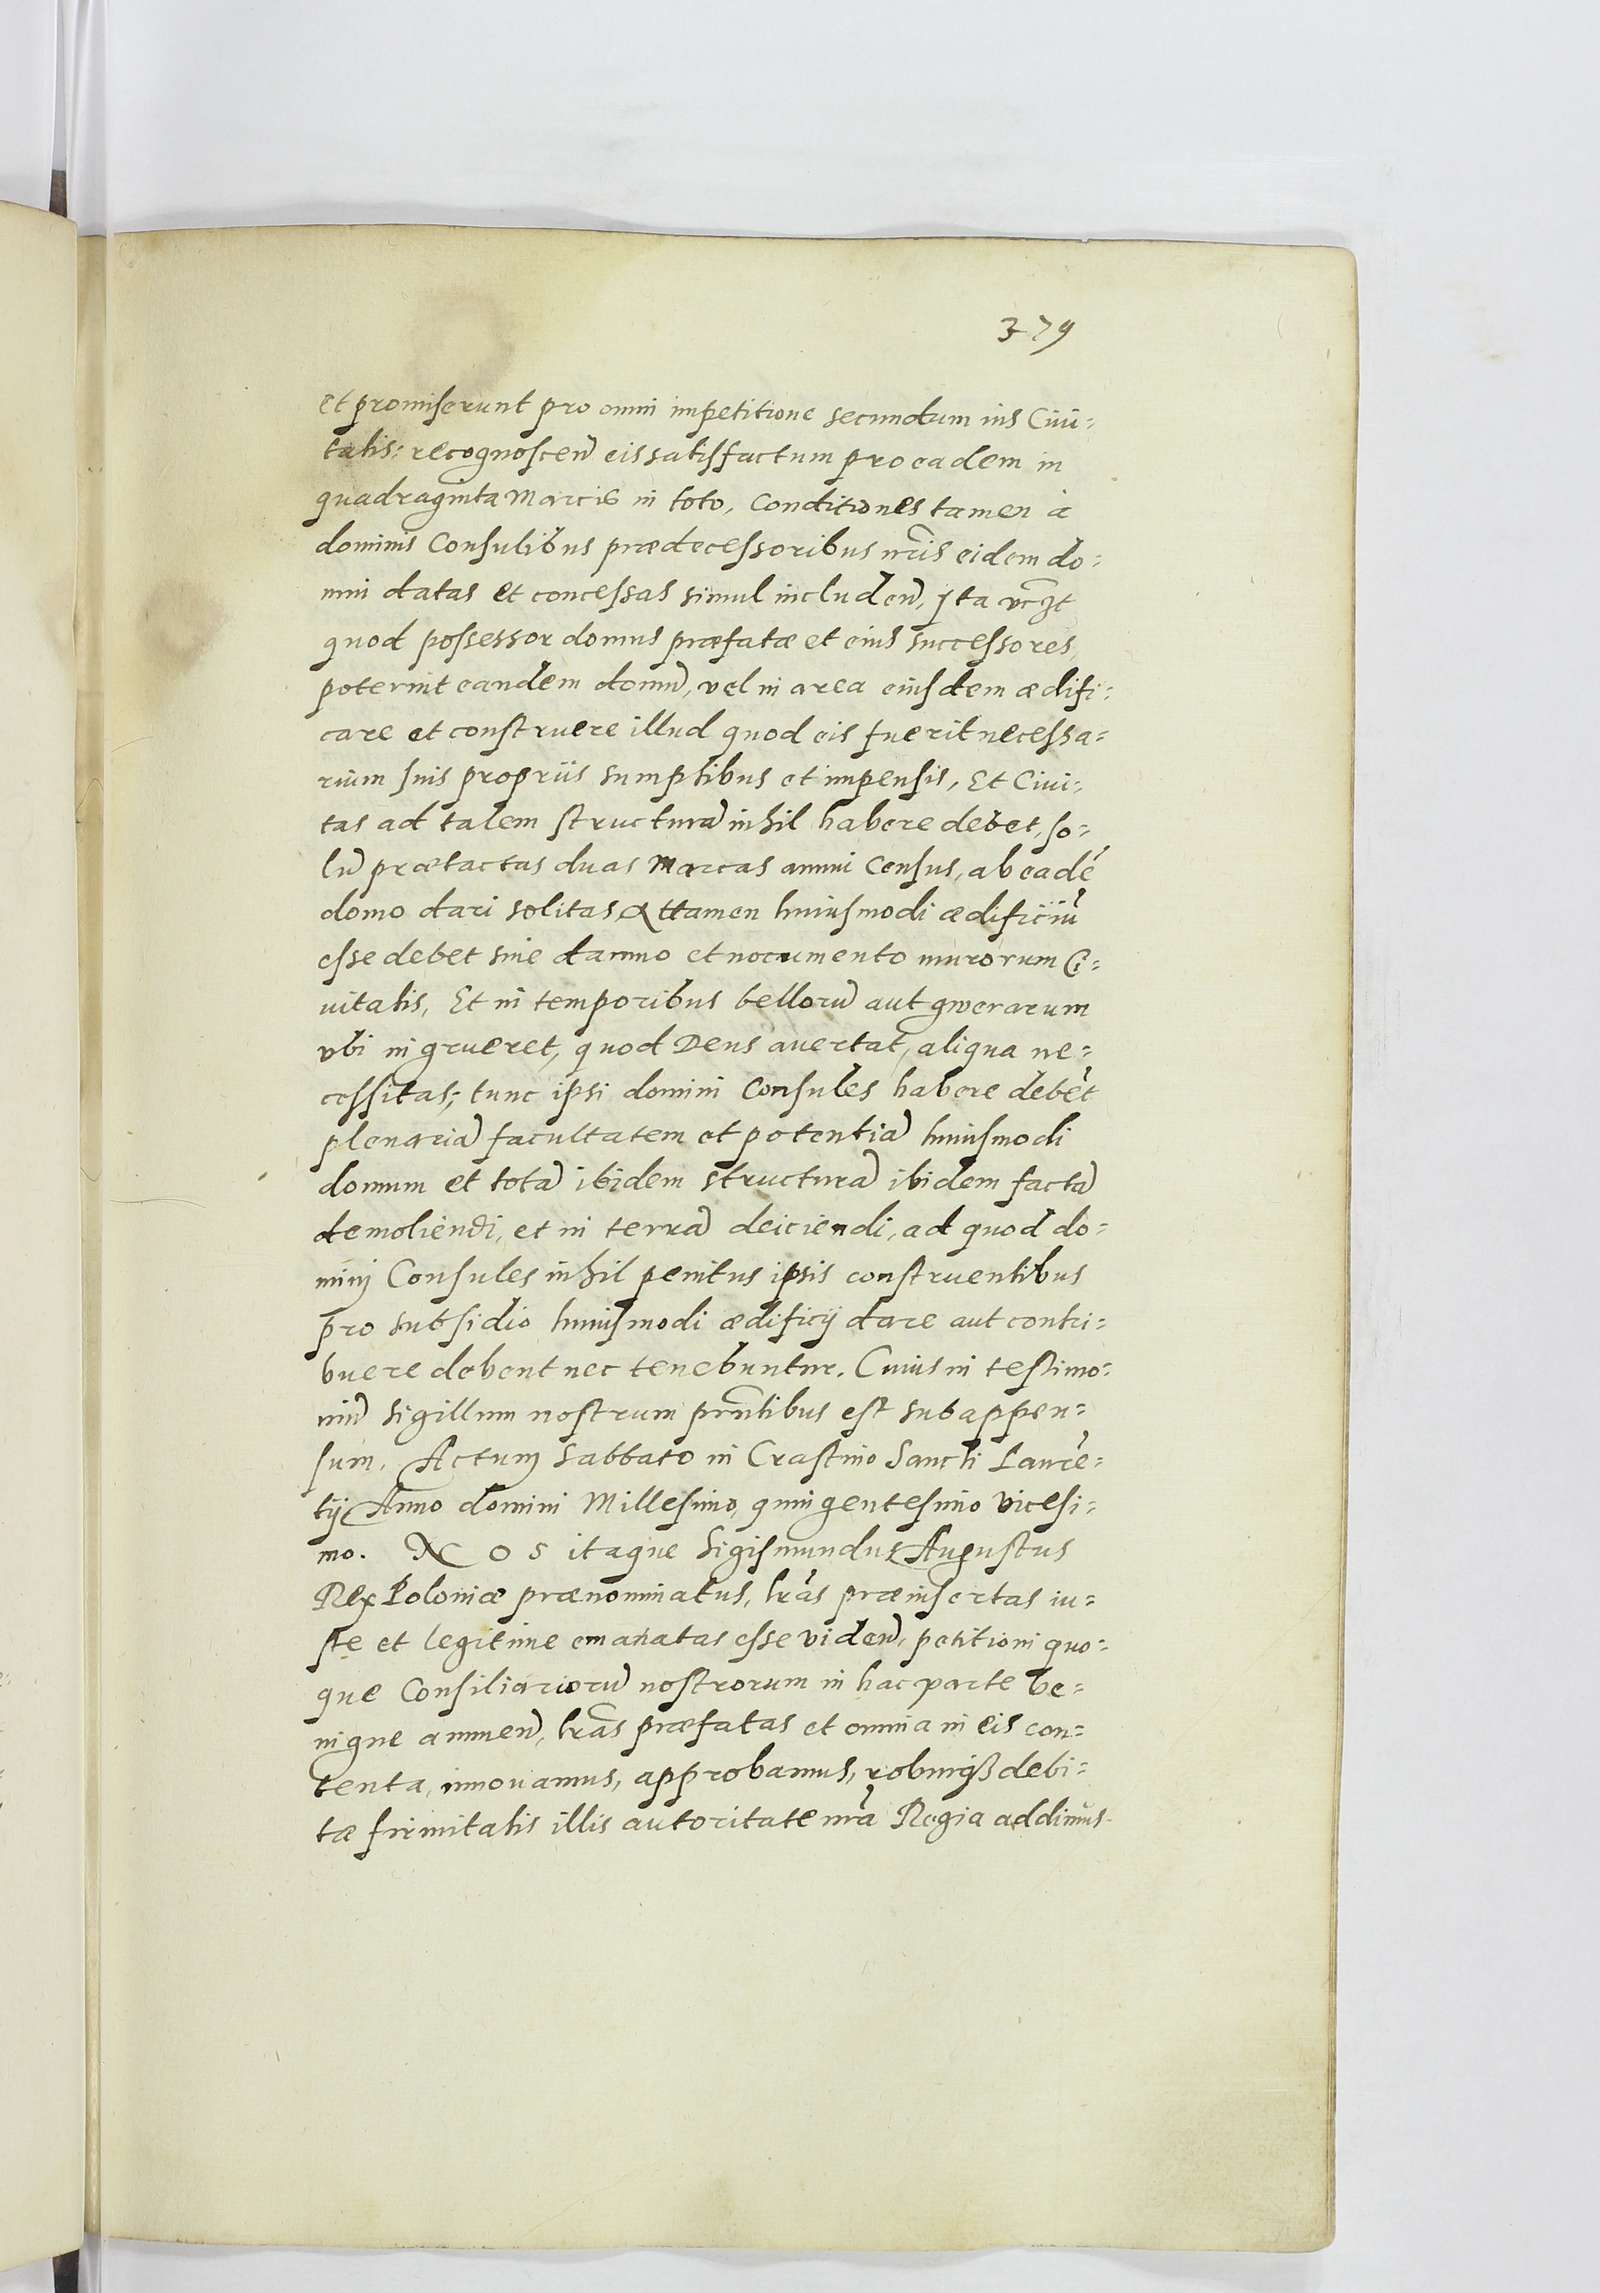 379
et promiserunt pro omni impetitione secundum ius Ciui-
tatis: recognoscen̄ eis satisfactum pro eadem in
quadraginta Marcis in toto, Conditiones tamen à
dominis Consulibus prædecessoribus nr̃is eidem do-
mui datas et concessas simul includen̄, jta vcz̃t
quod possessor domus præfatæ et eius successores,
poterint eandem domũ, vel in area eiusdem ædifi-
care et construere illud quod eis fuerit necessa-
rium suis propriis sumptibus et impensis, Et Ciui-
tas ad talem structurã nihil habere debet, so-
lũ prætactas duas Marcas annui Census, ab eadẽ
domo dari solitas Attamen huiusmodi ædificiiũ
esse debet sine damno et nocumento murorum Ci-
uitatis, Et in temporibus bellorũ aut gwerarum
vbi ingrueret, quod Deus auertat, aliqua ne-
cessitas; tunc ipsi domini Consules habere debẽt
plenariã facultatem et potentiã huiusmodi
domum et totã ibidem structurã ibidem factã
demoliendi, et in terrã deiciendi, ad quod do-
minj Consules nihil penitus ipsis construentibus
pro subsidio huiusmodi ædificij dare aut contri-
buere debent nec tenebuntur. Cuius in testimo-
niũ sigillum nostrum pñtibus est subappen-
sum. Actum Sabbato in Crastino Sancti Laurẽ-
tij Anno domini Millesimo, quingentesimo vicesi-
mo. NOS itaque Sigismundus Augustus
Rex Poloniæ prænominatus, lr̃as præinsertas iu-
ste et legitime emanatas esse viden̄, petitioni quo-
que Consiliariorũ nostrorum in hac parte be-
nigne annuen̄, lr̃as præfatas et omnia in eis con-
tenta, innouamus, approbamus, roburq̃ß debi-
tæ firmitatis illis autoritate nr̃a Regia addimus.